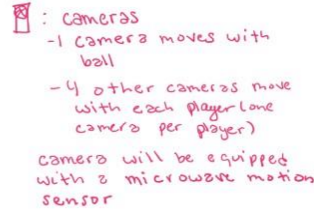 : cameras
-1 camera moves with
ball
-4 other cameras move
with each player (one
camera per player)
camera will be equipped
with a microwave motion
sensor